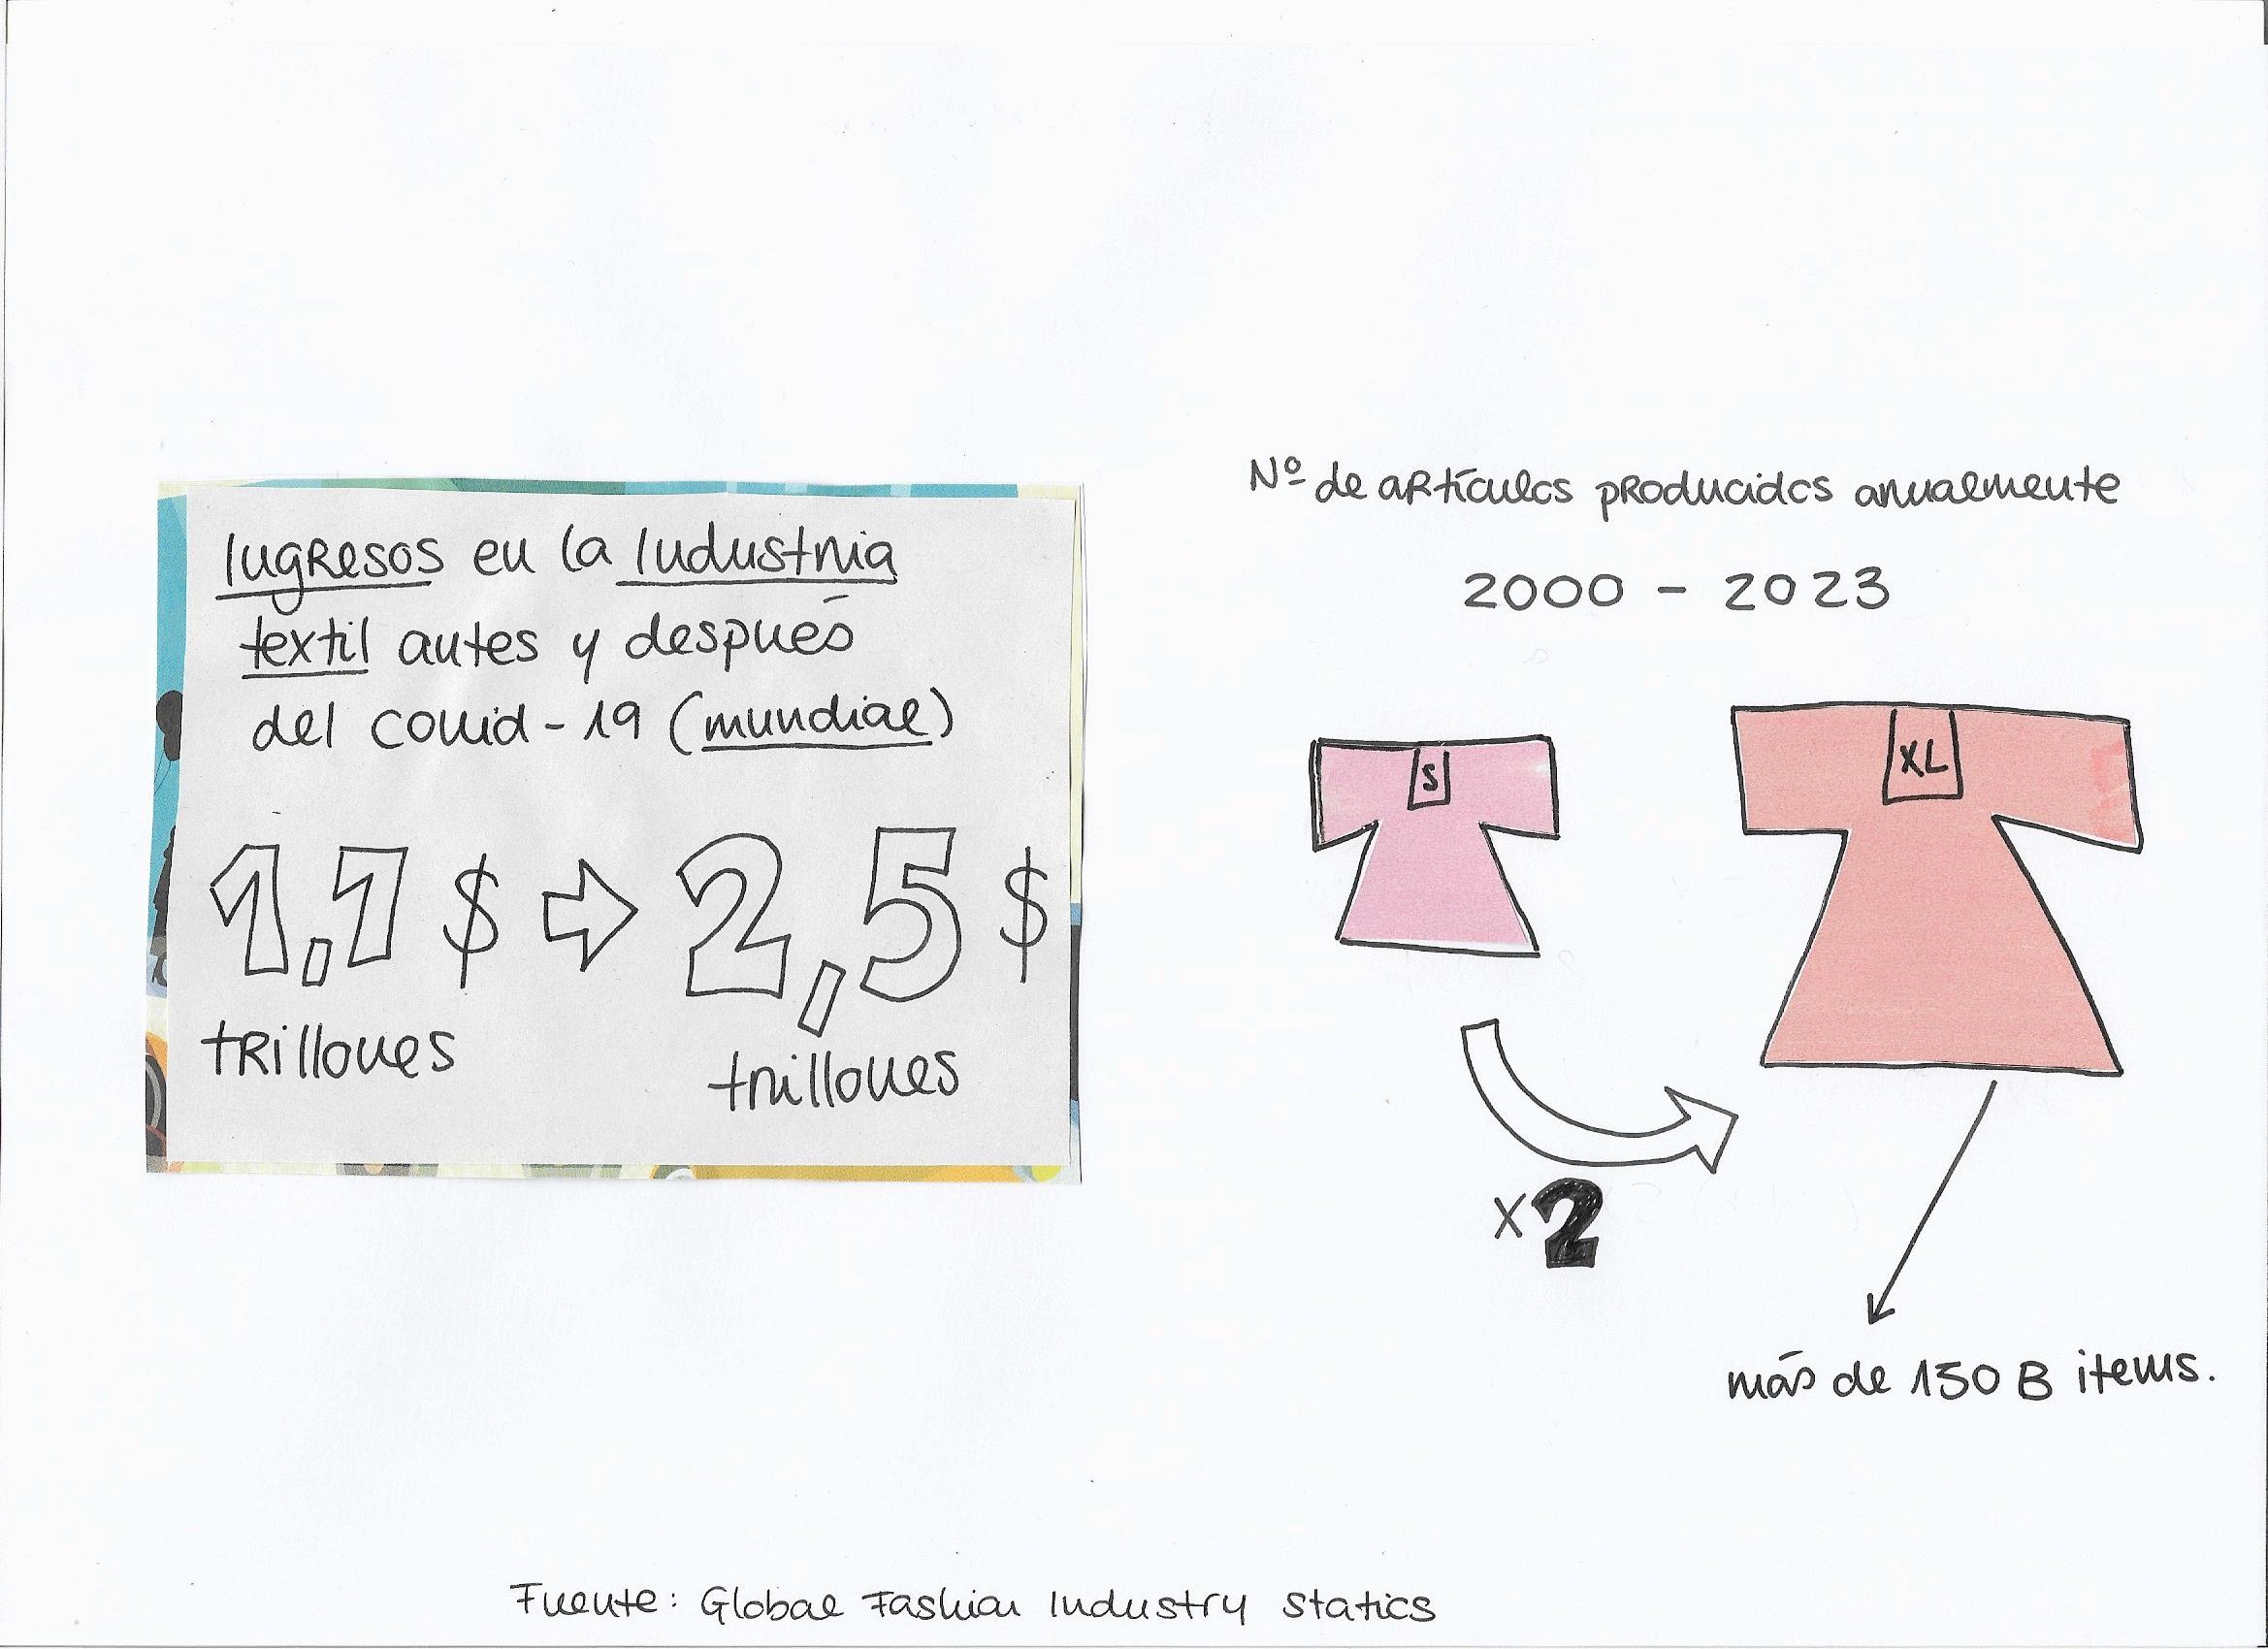 Ingresos en la Industria
textil antes y después
del covid-19 (mundial)
1,1 $ 2,5 $
trillones
trillones
Nº de artículos producidos anualmente
2000 - 2023
S
XL
x2
más de 150 B items.
Fuente: Global Fashion Industry statics